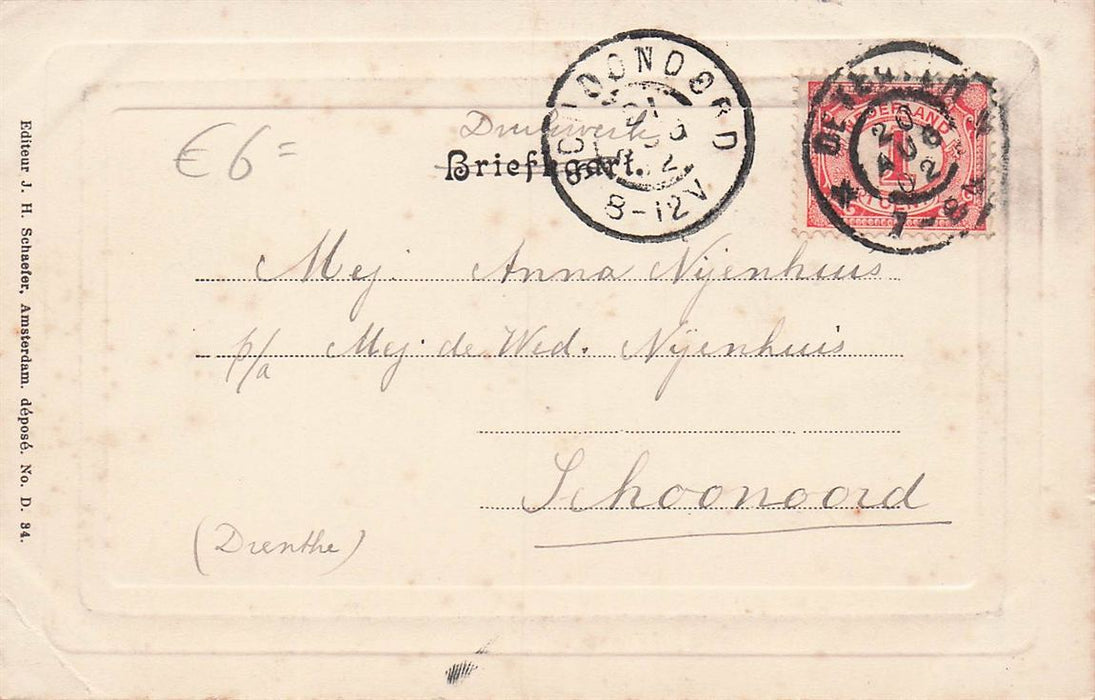 Editeur J. H. Schaefer, Amsterdam. déposé. No. D. 84.
€ 6 =
Drukwerk
Briefkaart.
SCHOONOORD
21
AUG
02
8-12V
DEVENTER
20
AUG
02
7-8
NEDERLAND
1
CENT
Mej. Anna Nijenhuis
p/a Mej. de Wed. Nijenhuis
Schoonoord
(Drenthe)